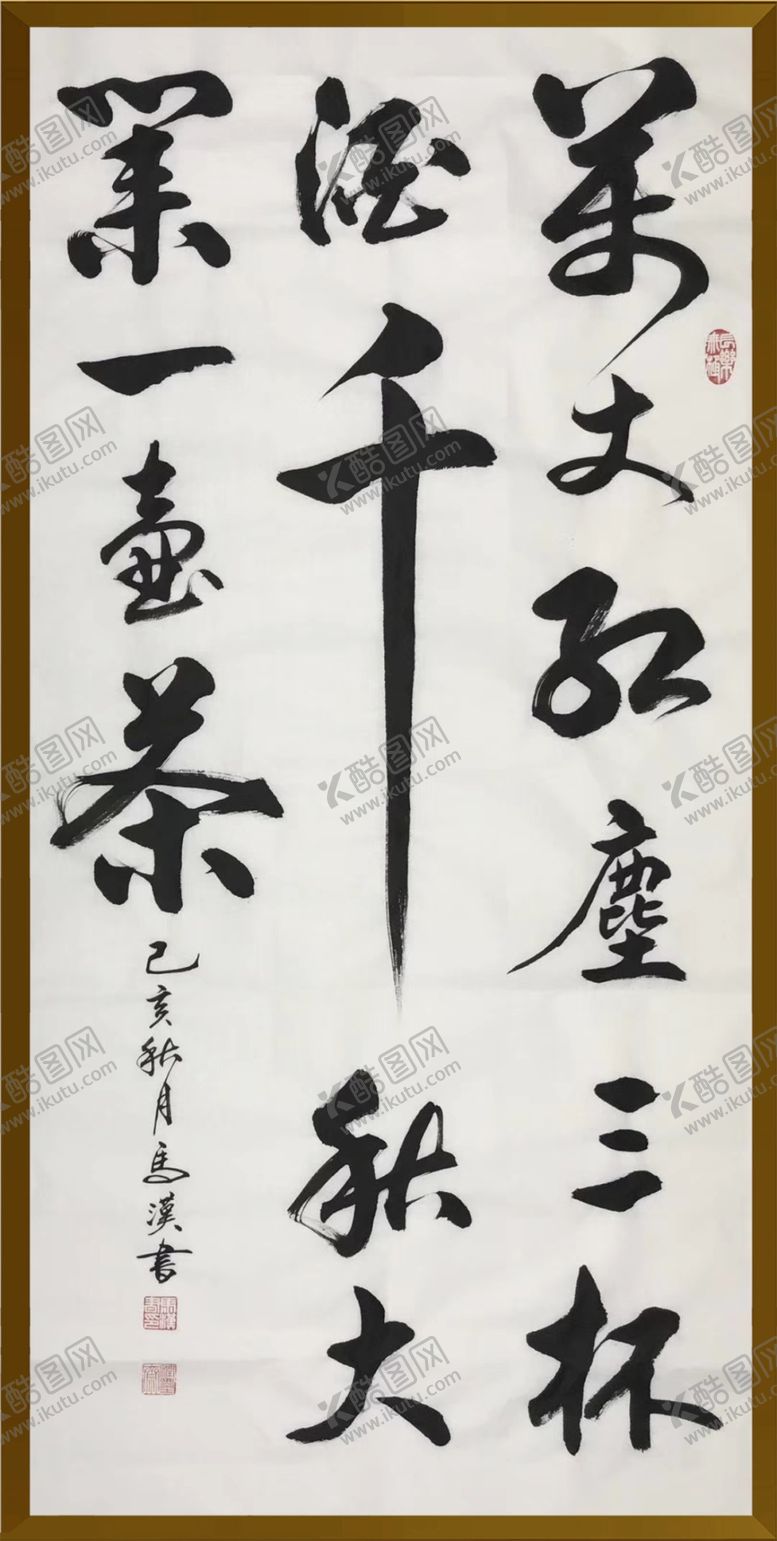 萬丈紅塵三杯
酒千秋大
業一壺茶
己亥秋月馬漢書
酷图网
www.ikutu.com